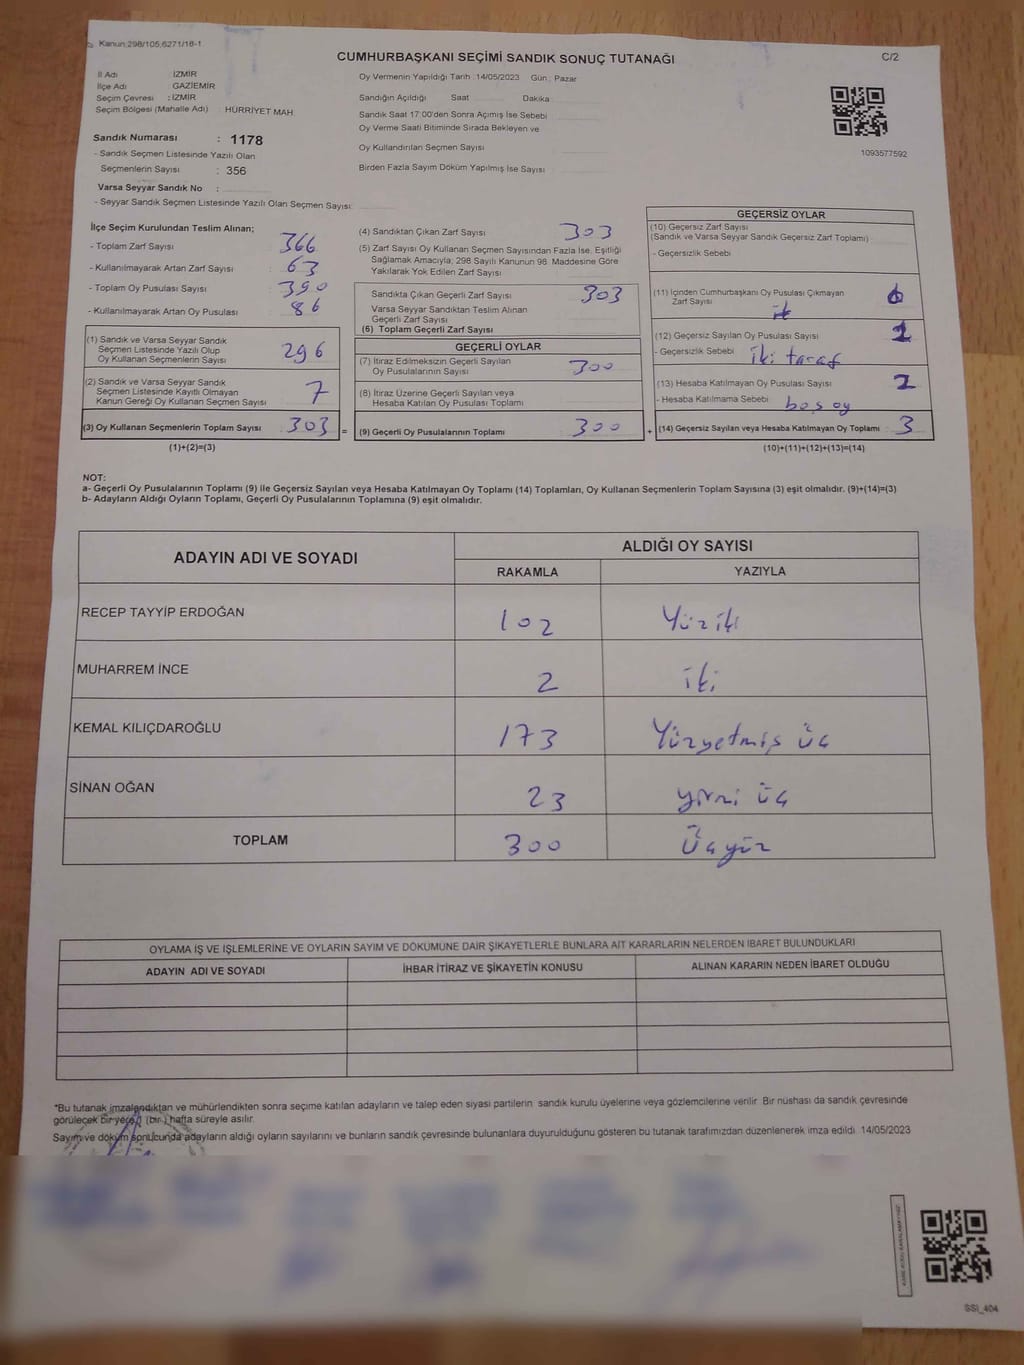 Kanun:298/105,6271/16-1
CUMHURBAŞKANI SEÇİMİ SANDIK SONUÇ TUTANAĞI
C/2
İl Adı : İZMİR
İlçe Adı GAZİEMİR
Seçim Çevresi : İZMİR
Seçim Bölgesi (Mahalle Adı) : HÜRRİYET MAH.
Sandık Numarası : 1178
- Sandık Seçmen Listesinde Yazılı Olan
Seçmenlerin Sayısı : 356
Varsa Seyyar Sandık No :
- Seyyar Sandık Seçmen Listesinde Yazılı Olan Seçmen Sayısı:
Oy Vermenin Yapıldığı Tarih : 14/05/2023 Gün : Pazar
Sandığın Açıldığı Saat Dakika
Sandık Saat 17:00'den Sonra Açımış İse Sebebi
Oy Verme Saati Bitiminde Sırada Bekleyen ve
Oy Kullandırılan Seçmen Sayısı
Birden Fazla Sayım Döküm Yapılmış İse Sayısı
1093577592
İlçe Seçim Kurulundan Teslim Alınan;
- Toplam Zarf Sayısı : 366
- Kullanılmayarak Artan Zarf Sayısı : 63
- Toplam Oy Pusulası Sayısı : 390
- Kullanılmayarak Artan Oy Pusulası : 86
(1) Sandık ve Varsa Seyyar Sandık
Seçmen Listesinde Yazılı Olup
Oy Kullanan Seçmenlerin Sayısı : 296
(2) Sandık ve Varsa Seyyar Sandık
Seçmen Listesinde Kayıtlı Olmayan
Kanun Gereği Oy Kullanan Seçmen Sayısı : 7
(3) Oy Kullanan Seçmenlerin Toplam Sayısı : 303 =
(1)+(2)=(3)
(4) Sandıktan Çıkan Zarf Sayısı 303
(5) Zarf Sayısı Oy Kullanan Seçmen Sayısından Fazla İse, Eşitliği
Sağlamak Amacıyla; 298 Sayılı Kanunun 98. Maddesine Göre
Yakılarak Yok Edilen Zarf Sayısı
Sandıkta Çıkan Geçerli Zarf Sayısı 303
Varsa Seyyar Sandıktan Teslim Alınan
Geçerli Zarf Sayısı
(6) Toplam Geçerli Zarf Sayısı
GEÇERLİ OYLAR
(7) İtiraz Edilmeksizin Geçerli Sayılan
Oy Pusulalarının Sayısı 300
(8) İtiraz Üzerine Geçerli Sayılan veya
Hesaba Katılan Oy Pusulası Toplamı
(9) Geçerli Oy Pusulalarının Toplamı 300 +
GEÇERSİZ OYLAR
(10) Geçersiz Zarf Sayısı
(Sandık ve Varsa Seyyar Sandık Geçersiz Zarf Toplamı) :
- Geçersizlik Sebebi
(11) İçinden Cumhurbaşkanı Oy Pusulası Çıkmayan
Zarf Sayısı
(12) Geçersiz Sayılan Oy Pusulası Sayısı
- Geçersizlik Sebebi iki taraf
(13) Hesaba Katılmayan Oy Pusulası Sayısı
- Hesaba Katılmama Sebebi boş oy
(14) Geçersiz Sayılan veya Hesaba Katılmayan Oy Toplamı : 3
(10)+(11)+(12)+(13)=(14)
NOT:
a- Geçerli Oy Pusulalarının Toplamı (9) ile Geçersiz Sayılan veya Hesaba Katılmayan Oy Toplamı (14) Toplamları, Oy Kullanan Seçmenlerin Toplam Sayısına (3) eşit olmalıdır. (9)+(14)=(3)
b- Adayların Aldığı Oyların Toplamı, Geçerli Oy Pusulalarının Toplamına (9) eşit olmalıdır.
ADAYIN ADI VE SOYADI ALDIĞI OY SAYISI
RAKAMLA YAZIYLA
RECEP TAYYİP ERDOĞAN 102 Yüz iki
MUHARREM İNCE 2 iki
KEMAL KILIÇDAROĞLU 173 Yüzyetmiş üç
SİNAN OĞAN 23 yirmi üç
TOPLAM 300 Üçyüz
OYLAMA İŞ VE İŞLEMLERİNE VE OYLARIN SAYIM VE DÖKÜMÜNE DAİR ŞİKAYETLERLE BUNLARA AİT KARARLARIN NELERDEN İBARET BULUNDUKLARI
ADAYIN ADI VE SOYADI İHBAR İTİRAZ VE ŞİKAYETİN KONUSU ALINAN KARARIN NEDEN İBARET OLDUĞU
*Bu tutanak imzalandıktan ve mühürlendikten sonra seçime katılan adayların ve talep eden siyasi partilerin sandık kurulu üyelerine veya gözlemcilerine verilir. Bir nüshası da sandık çevresinde
görülecek bir yere (bir ) hafta süreyle asılır.
Sayım ve döküm sonucunda adayların aldığı oyların sayılarını ve bunların sandık çevresinde bulunanlara duyurulduğunu gösteren bu tutanak tarafımızdan düzenlenerek imza edildi. 14/05/2023
SSİ_404